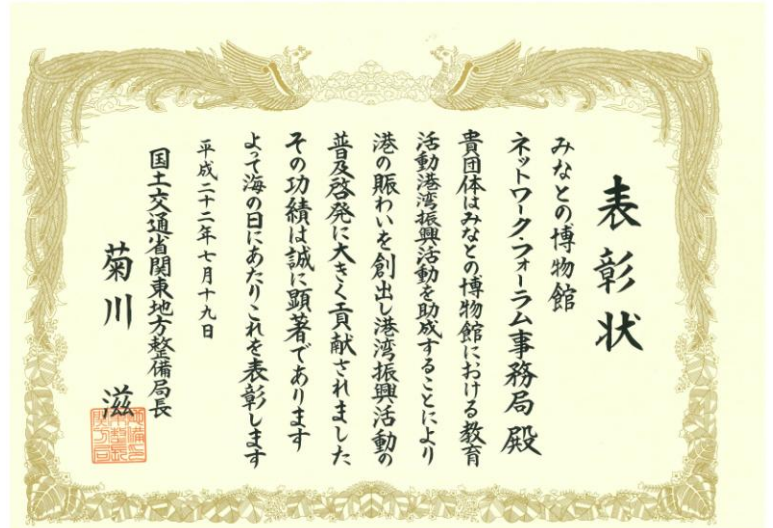 表彰状
みなとの博物館
ネットワーク・フォーラム事務局 殿
貴団体はみなとの博物館における教育
活動港湾振興活動を助成することにより
港の賑わいを創出し港湾振興活動の
普及啓発に大きく貢献されました
その功績は誠に顕著であります
よって海の日にあたりこれを表彰します
平成二十二年七月十九日
国土交通省関東地方整備局長
菊川 滋